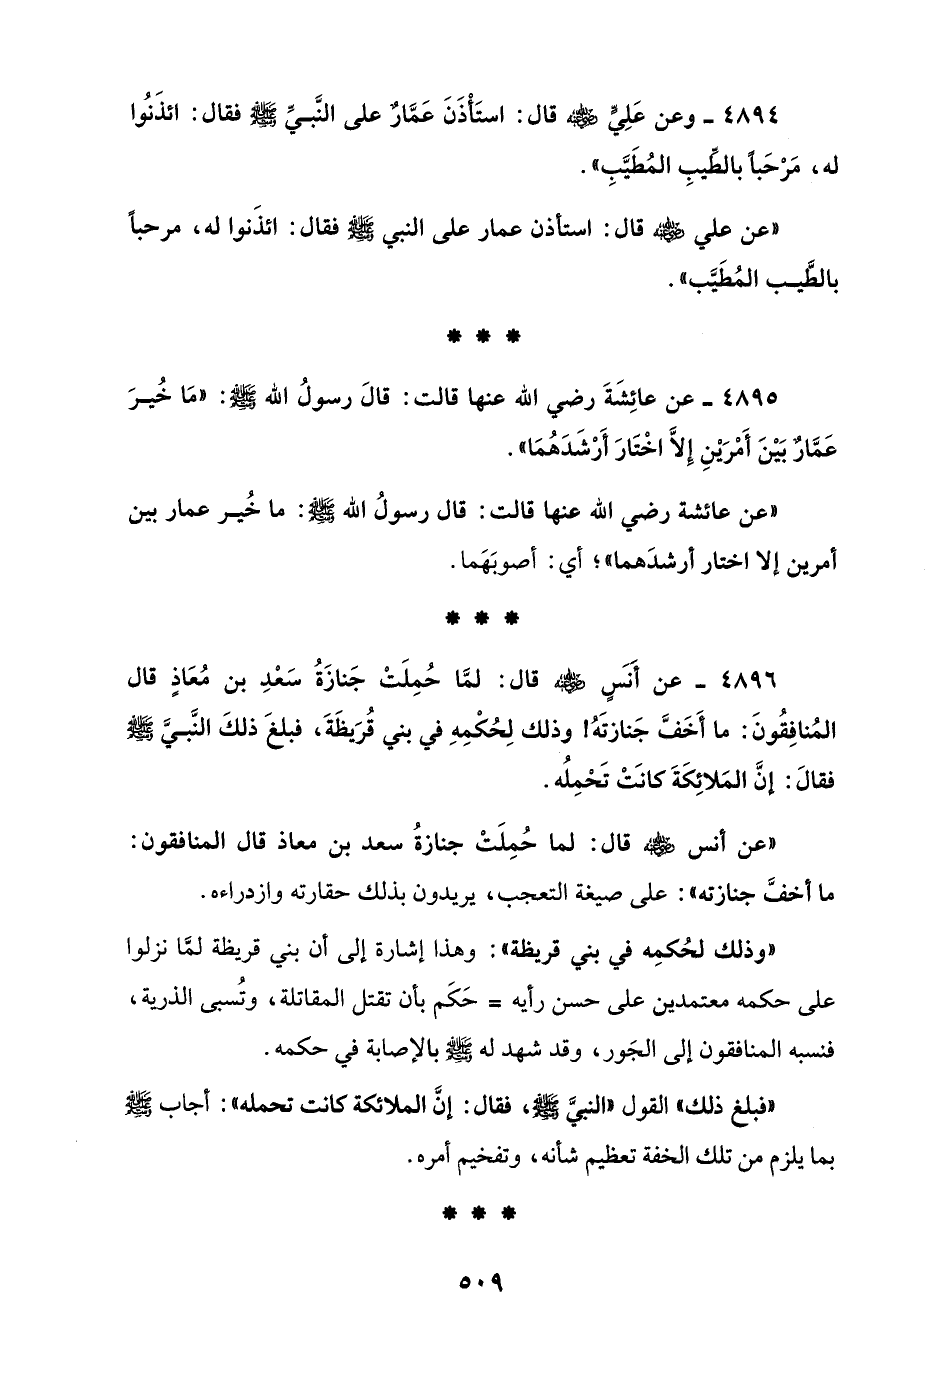 ٤٨٩٤ ـ وعن عَلِيٍّ رضي الله عنه قال: استَأْذَنَ عَمَّارٌ على النَّبيِّ ﷺ فقال: ائذَنُوا
له، مَرْحَباً بالطِّيبِ المُطَيَّبِ».
«عن علي رضي الله عنه قال: استأذن عمار على النبي ﷺ فقال: ائذَنوا له، مرحباً
بالطَّيب المُطَيَّب».
* * *
٤٨٩٥ ـ عن عائِشَةَ رضي الله عنها قالت: قالَ رسولُ الله ﷺ: «مَا خُيرَ
عَمَّارٌ بَيْنَ أَمْرَيْنِ إِلاَّ اخْتَارَ أَرْشَدَهُمَا».
«عن عائشة رضي الله عنها قالت: قال رسولُ الله ﷺ: ما خُير عمار بين
أمرين إلا اختار أرشدَهما»؛ أي: أصوبَهَما.
* * *
٤٨٩٦ ـ عن أَنَسٍ رضي الله عنه قال: لمَّا حُمِلَتْ جَنازَةُ سَعْدِ بن مُعَاذٍ قال
المُنافِقُونَ: ما أَخَفَّ جَنازتَهُ! وذلك لِحُكْمِهِ في بني قُرَيظَةَ، فبلغَ ذلكَ النَّبيَّ ﷺ
فقالَ: إنَّ المَلائِكَةَ كانَتْ تَحْمِلُه.
«عن أنس رضي الله عنه قال: لما حُمِلَتْ جنازةُ سعد بن معاذ قال المنافقون:
ما أخفَّ جنازته»: على صيغة التعجب، يريدون بذلك حقارته وازدراءه.
«وذلك لحُكمِه في بني قريظة»: وهذا إشارة إلى أن بني قريظة لمَّا نزلوا
على حكمه معتمدين على حسن رأيه = حَكَم بأن تقتل المقاتلة، وتُسبى الذرية،
فنسبه المنافقون إلى الجَور، وقد شهد له ﷺ بالإصابة في حكمه.
«فبلغ ذلك» القول «النبيَّ ﷺ، فقال: إنَّ الملائكة كانت تحمله»: أجاب ﷺ
بما يلزم من تلك الخفة تعظيم شأنه، وتفخيم أمره.
* * *
٥٠٩